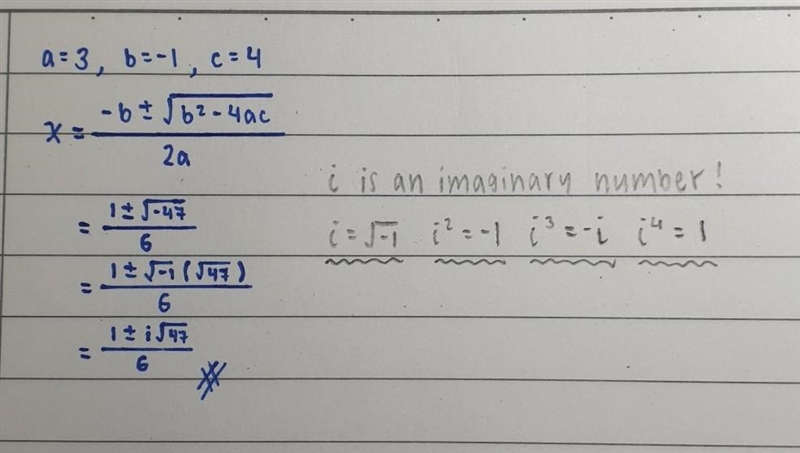 a=3, b=-1, c=4
x = (-b ± √(b² - 4ac)) / 2a
= (1 ± √-47) / 6
= (1 ± √-1 (√47)) / 6
= (1 ± i√47) / 6
i is an imaginary number!
i=√-1 i²=-1 i³=-i i⁴=1